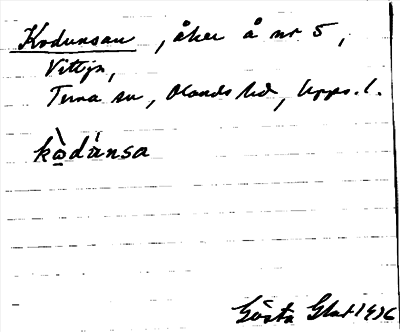 Kodunsan, åker å nr 5,
Vittja,
Tuna sn, Olands hd, Upps. l.
kò̱dánsa
Gösta